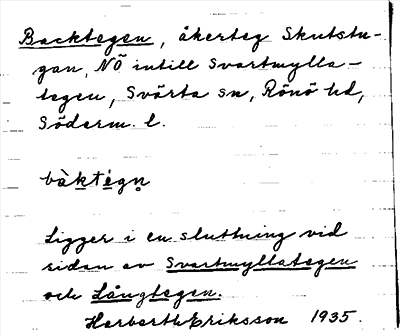 Backtegen, åkerteg Skutstu-
gan, NÖ intill Svartmylla-
tegen, Svärta sn, Rönö hd,
Söderm. l.
bàktégn̥
Ligger i en sluttning vid
sidan av Svartmyllategen
och Långtegen.
Harberth Eriksson 1935.